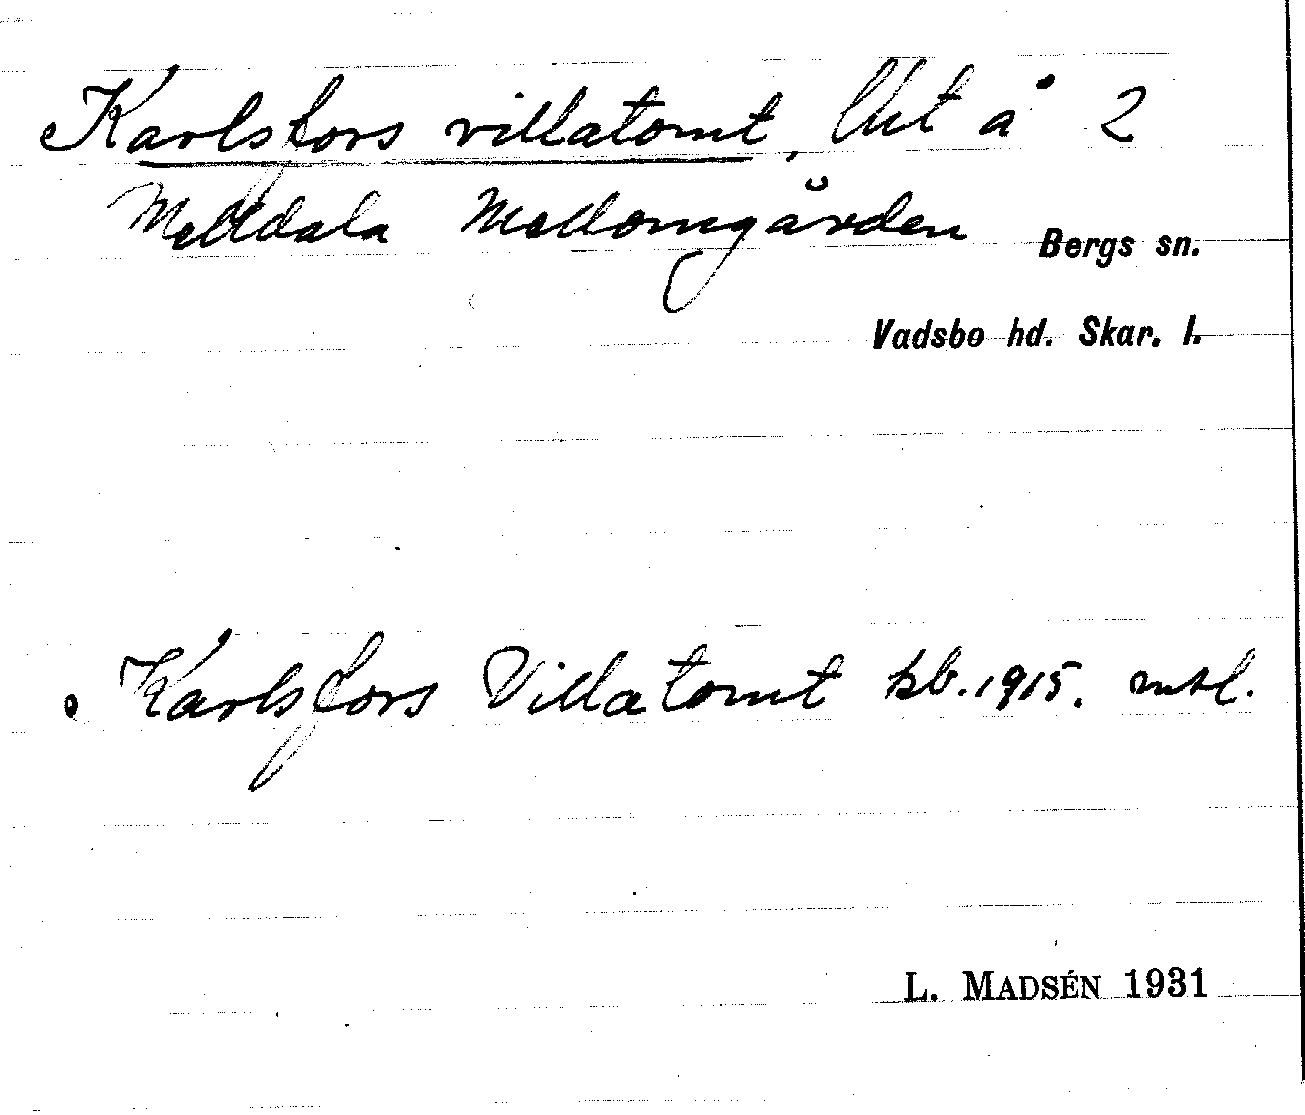 Karlsfors villatomt, lht å 2
Melldala Mellomgården
Bergs sn.
Vadsbo hd. Skar. l.
Karlsfors Villatomt kb. 1915. mtl.
L. MADSÉN 1931